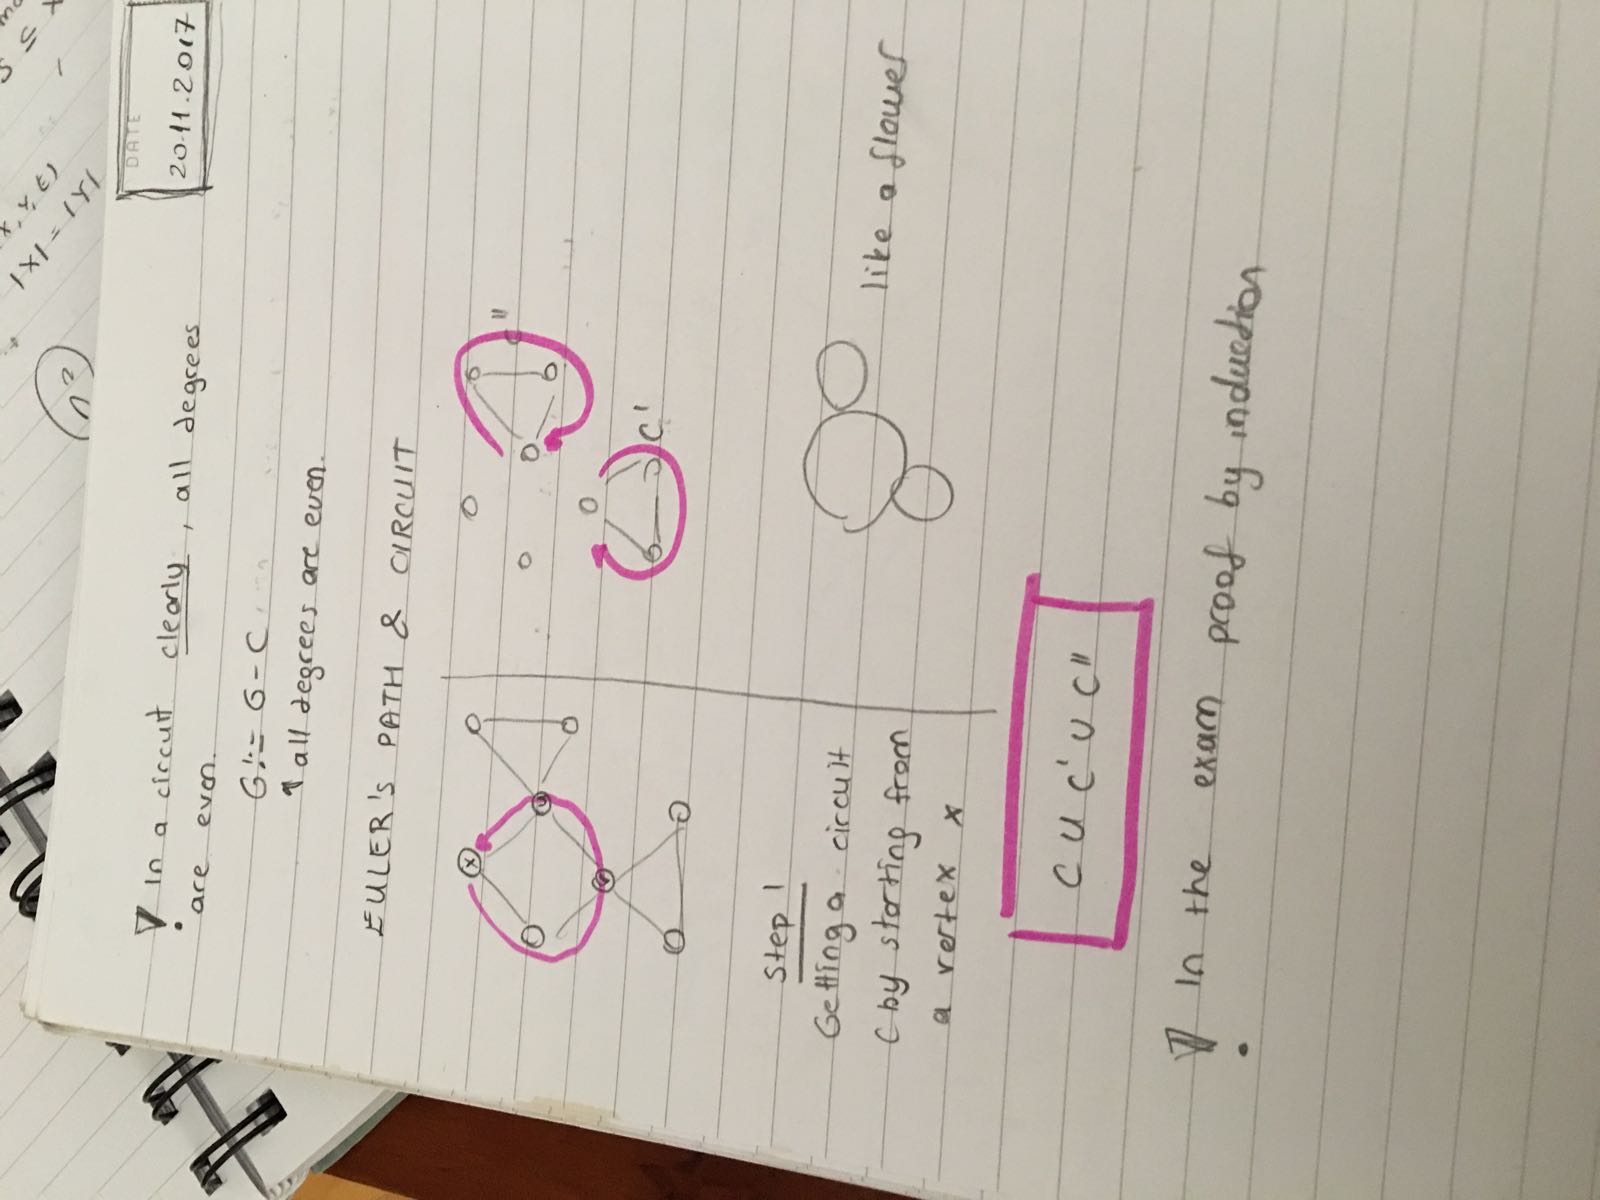 n²
x, y, E)
|X| = |Y|
DATE
20.11.2017
! In a circuit clearly, all degrees
are even.
G' := G - C
↑ all degrees are even.
EULER'S PATH & CIRCUIT
x
u
v
C"
C'
Step 1
Getting a circuit
C by starting from
a vertex x
like a flower
C U C' U C"
! In the exam proof by induction